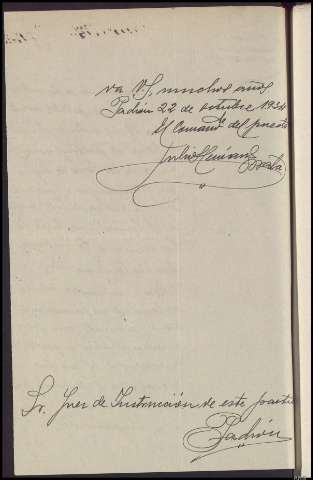 va V.S. muchos años.
Padrón 22 de octubre 1934
El Comandte del puesto
Julio
Sr. Juez de Instrucción de este partido
Padrón